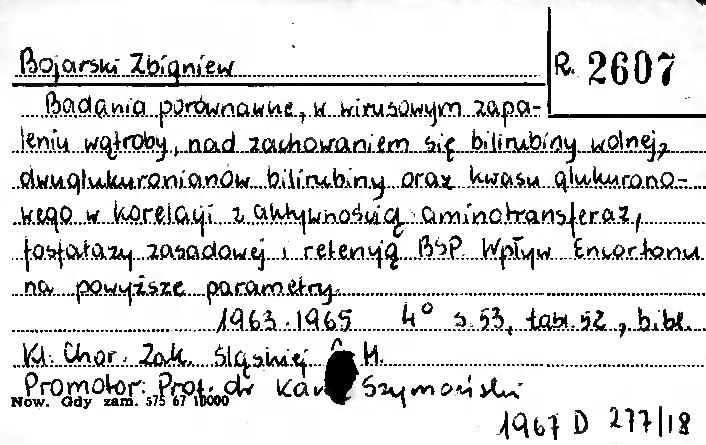 Bojarski Zbigniew
R. 2607
Badania porównawcze, w wirusowym zapa-
leniu wątroby, nad zachowaniem się bilirubiny wolnej,
dwuglukuronianów bilirubiny oraz kwasu glukurono-
wego w korelacji z aktywnością aminotransferaz,
fosfatazy zasadowej i retencją BSP. Wpływ Encortonu
na powyższe parametry.
1963-1965 4° s.53, tabl.52, bibl.
Kl. Chor. Zak. Śląskiej A.M.
Promotor: Prof. dr Szymoński
Now. Gdy zam. 575 67 10000
1967 D 277/18